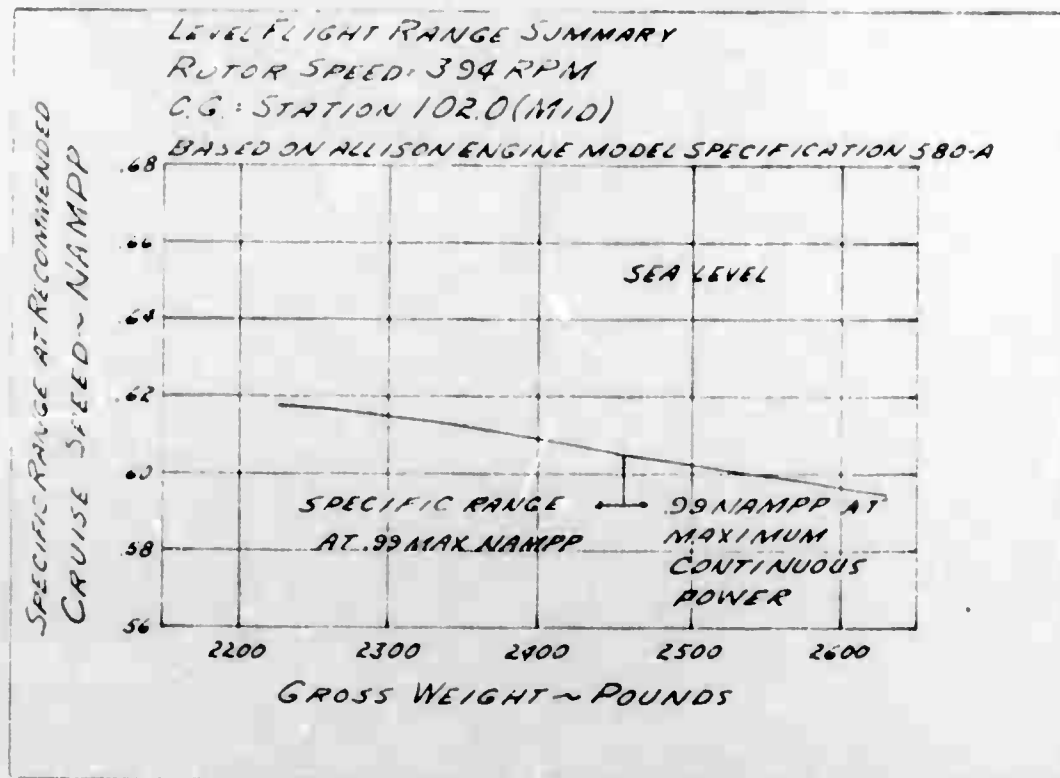 LEVEL FLIGHT RANGE SUMMARY
ROTOR SPEED: 394 RPM
C.G.: STATION 102.0 (MID)
BASED ON ALLISON ENGINE MODEL SPECIFICATION 580-A
SPECIFIC RANGE AT RECOMMENDED
CRUISE SPEED ~ NAMPP
.68
.66
.64
.62
.60
.58
.56
SEA LEVEL
SPECIFIC RANGE
AT .99 MAX NAMPP
.99 NAMPP AT
MAXIMUM
CONTINUOUS
POWER
2200 2300 2400 2500 2600
GROSS WEIGHT ~ POUNDS